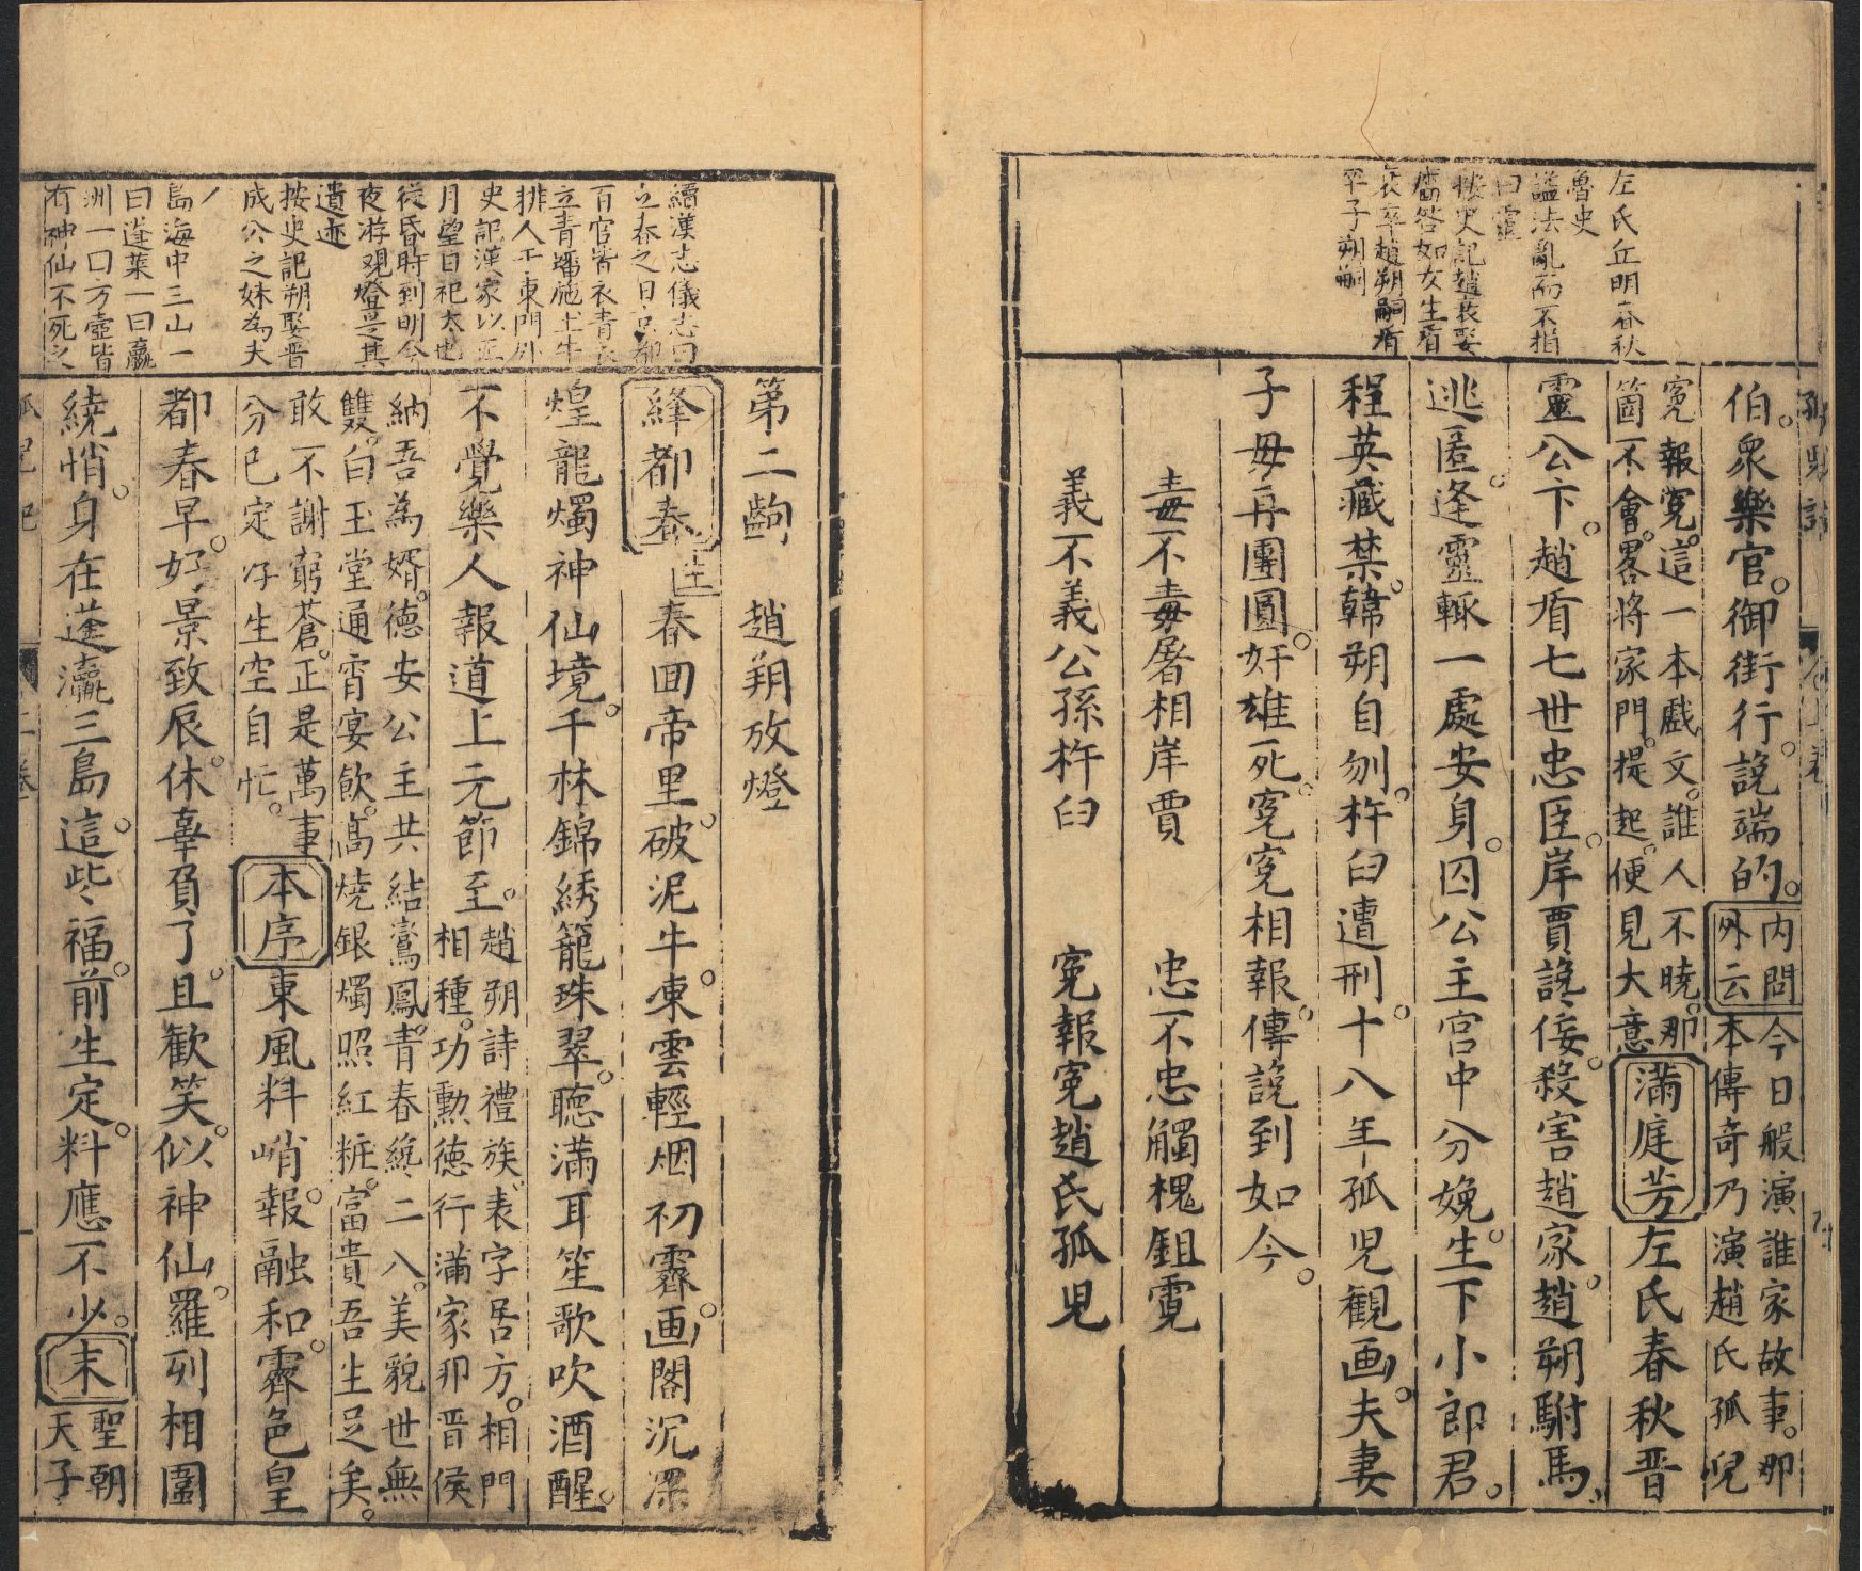 左氏丘明春秋
魯史
謚法亂而不損
曰靈
按史記趙衰娶
廧咎如女生盾
衰卒趙朔嗣盾
卒子朔嗣
伯。衆樂官。御街行。說端的。
内問
外云
今日般演誰家故事。那
本傳奇乃演趙氏孤兒
寃報寃。這一本戲文。誰人不曉。那
箇不會。畧將家門。提起。便見大意
滿庭芳
左氏春秋晋
靈公下。趙盾七世忠臣。岸賈說侫。殺害趙家。趙朔駙馬。
逃匿。逢靈輙一處安身。囚公主宫中分娩。生下小郎君。
程英藏禁。韓朔自刎。杵臼遭刑。十八年孤児観画。夫妻
子母再團圓。奸雄死。寃寃相報。傳說到如今。
毒不毒屠相岸賈 忠不忠觸槐鉏霓
義不義公孫杵臼 寃報寃趙氏孤児
續漢志儀志曰
立春之日京都
百官皆衣青衣
立青旛施土牛
排人于東門外
史記漢家以正
月望日祀太也
從昏時到明今
夜游觀燈是其
遺迹
按史記朔娶晋
成公之妹為夫
人
島海中三山一
曰蓬萊一曰瀛
洲一曰方壺皆
有神仙不死之
第二齣 趙朔放燈
絳都春
生
春囬帝里。破泥牛。東雲輕烟初霽。画閣沉深
煌龍燭神仙境。千林錦綉籠珠翠。聴滿耳笙歌吹酒醒。
不覺樂人報道上元節至。
趙朔詩禮族。表字居方。相門
相種。功勲德行滿家邦晋侯
納吾為婿。德安公主共結鸞鳳。青春綂二八。美貌世無
雙。白玉堂通宵宴飲。高燒銀燭照紅粧。富貴吾生足矣。
敢不謝穹蒼。正是萬事
分已定浮生空自忙。
本序
東風料峭。報融和。霽色皇
都春早。好景致辰。休辜負了。且歡笑。似神仙。羅列相圍
繞悄。身在蓬瀛三島。這些福。前生定。料應不少。
末
聖朝
天子
孤児記